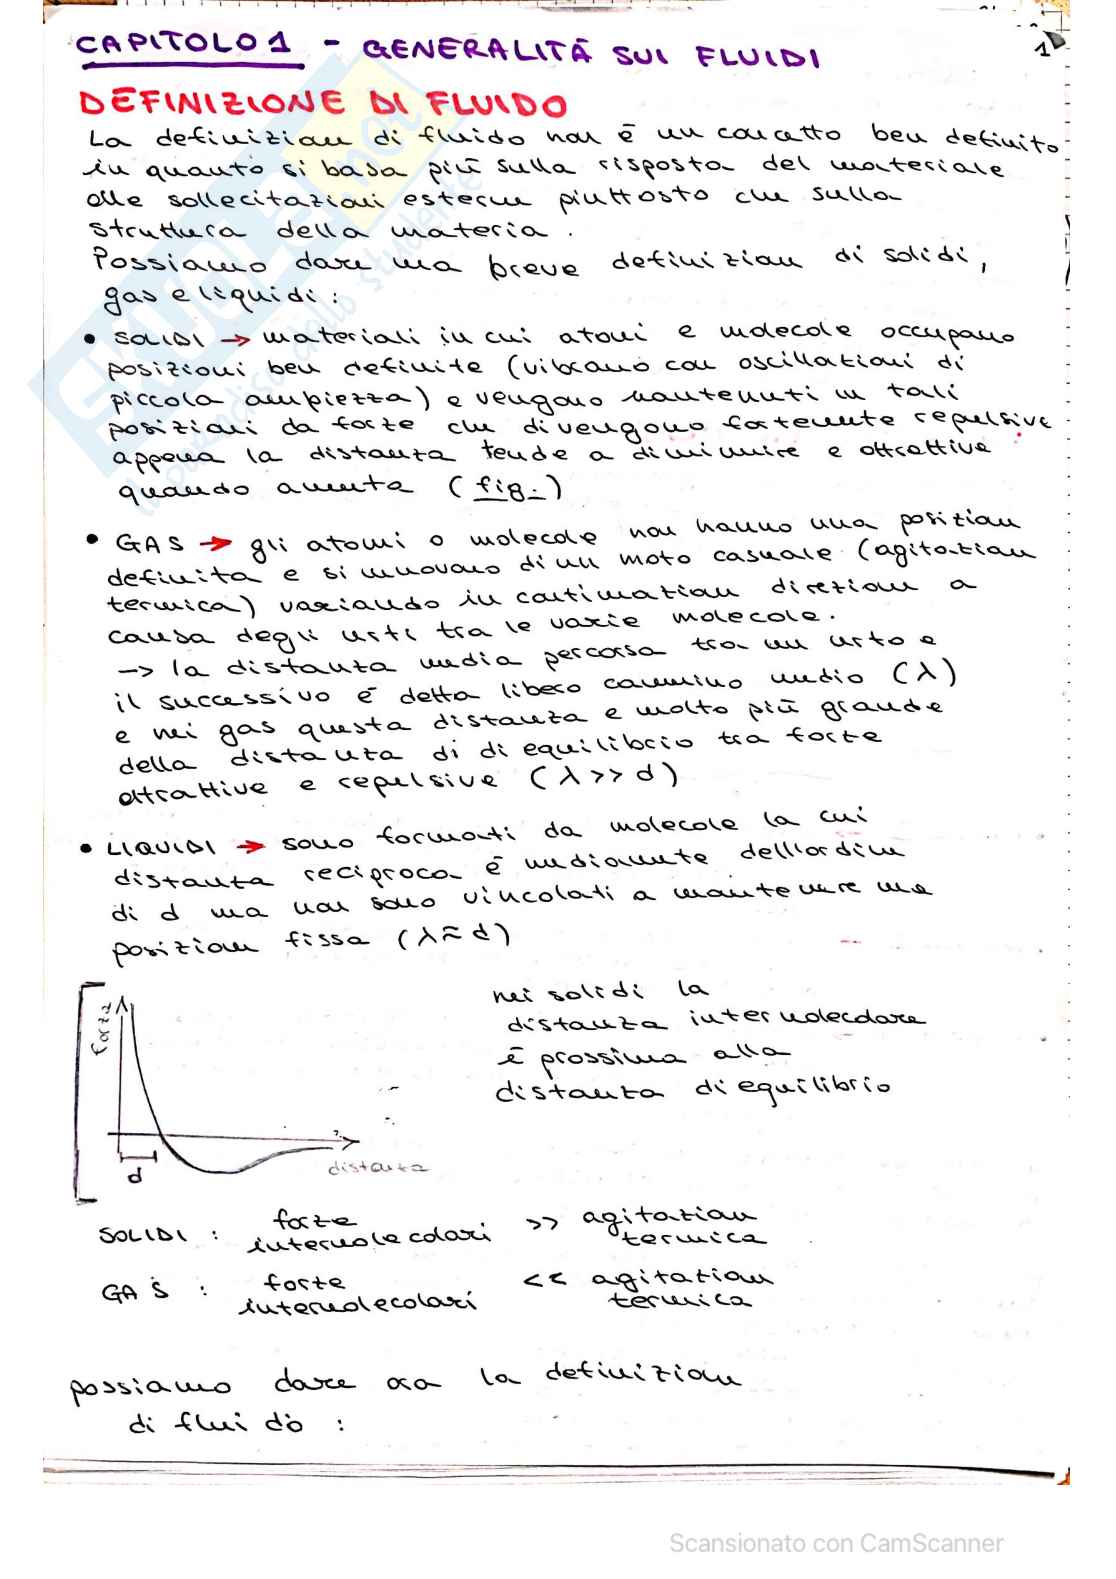 1
CAPITOLO 1 - GENERALITÀ SUI FLUIDI
DEFINIZIONE DI FLUIDO
La definizione di fluido non è un concetto ben definito
in quanto si basa più sulla risposta del materiale
alle sollecitazioni esterne piuttosto che sulla
struttura della materia.
Possiamo dare una breve definizione di solidi,
gas e liquidi:
• SOLIDI → materiali in cui atomi e molecole occupano
posizioni ben definite (vibrano con oscillazioni di
piccola ampiezza) e vengono mantenuti in tali
posizioni da forze che divengono fortemente repulsive
appena la distanza tende a diminuire e attrattive
quando aumenta (fig.)
• GAS → gli atomi o molecole non hanno una posizione
definita e si muovono di un moto casuale (agitazione
termica) variando in continuazione direzione a
causa degli urti tra le varie molecole.
→ la distanza media percorsa tra un urto e
il successivo è detta libero cammino medio (λ)
e nei gas questa distanza e molto più grande
della distanza di di equilibrio tra forze
attrattive e repulsive (λ >> d)
• LIQUIDI → sono formati da molecole la cui
distanza reciproca è mediamente dell'ordine
di d ma non sono vincolati a mantenere una
posizione fissa (λ ≈ d)
nei solidi la
distanza intermolecolare
è prossima alla
distanza di equilibrio
forza
d
distanza
SOLIDI : forze intermolecolari >> agitazione termica
GAS : forze intermolecolari << agitazione termica
possiamo dare ora la definizione
di fluido :
Skuola.net
il paradiso dello studente
Scansionato con CamScanner